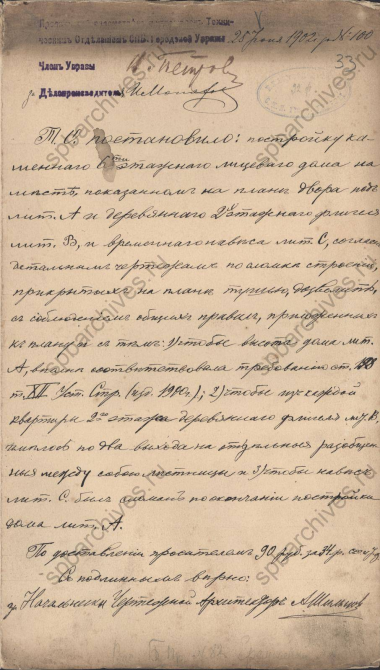 ческимъ Отдѣленіемъ СПБ. Городской Управы 28 Іюня 1902 г. № 100
33
Членъ Управы
Петров
Дѣлопроизводитель
Т. О. постановило: постройку ка-
меннаго 6ти этажнаго лицеваго дома на
мѣстѣ, показанномъ на планѣ двора подъ
лит. А и деревяннаго 2хъ этажнаго флигеля
лит. В, и временнаго навѣса лит. С, согласно
детальнымъ чертежамъ по сломкѣ строеній,
прикрытыхъ на планѣ тушью, дозволить,
съ соблюденіемъ общихъ правилъ,
къ плану и съ тѣмъ: 1) чтобы высота дома лит.
А, вполнѣ соотвѣтствовала требованію ст.
т. XII Уст. Стр. (изд. 1900 г.); 2) чтобы изъ каждой
квартиры 2го этажа деревяннаго флигеля лит. В,
имѣлось по два выхода на отдѣльныя разобщен-
ныя между собою лѣстницы и 3) чтобы навѣсъ
лит. С. былъ сломанъ по окончаніи постройки
дома лит. А.
По доставленіи просителемъ 90 руб. 34
Съ подлиннымъ вѣрно:
Начальника Чертежной Архитекторъ
spbarchives.ru